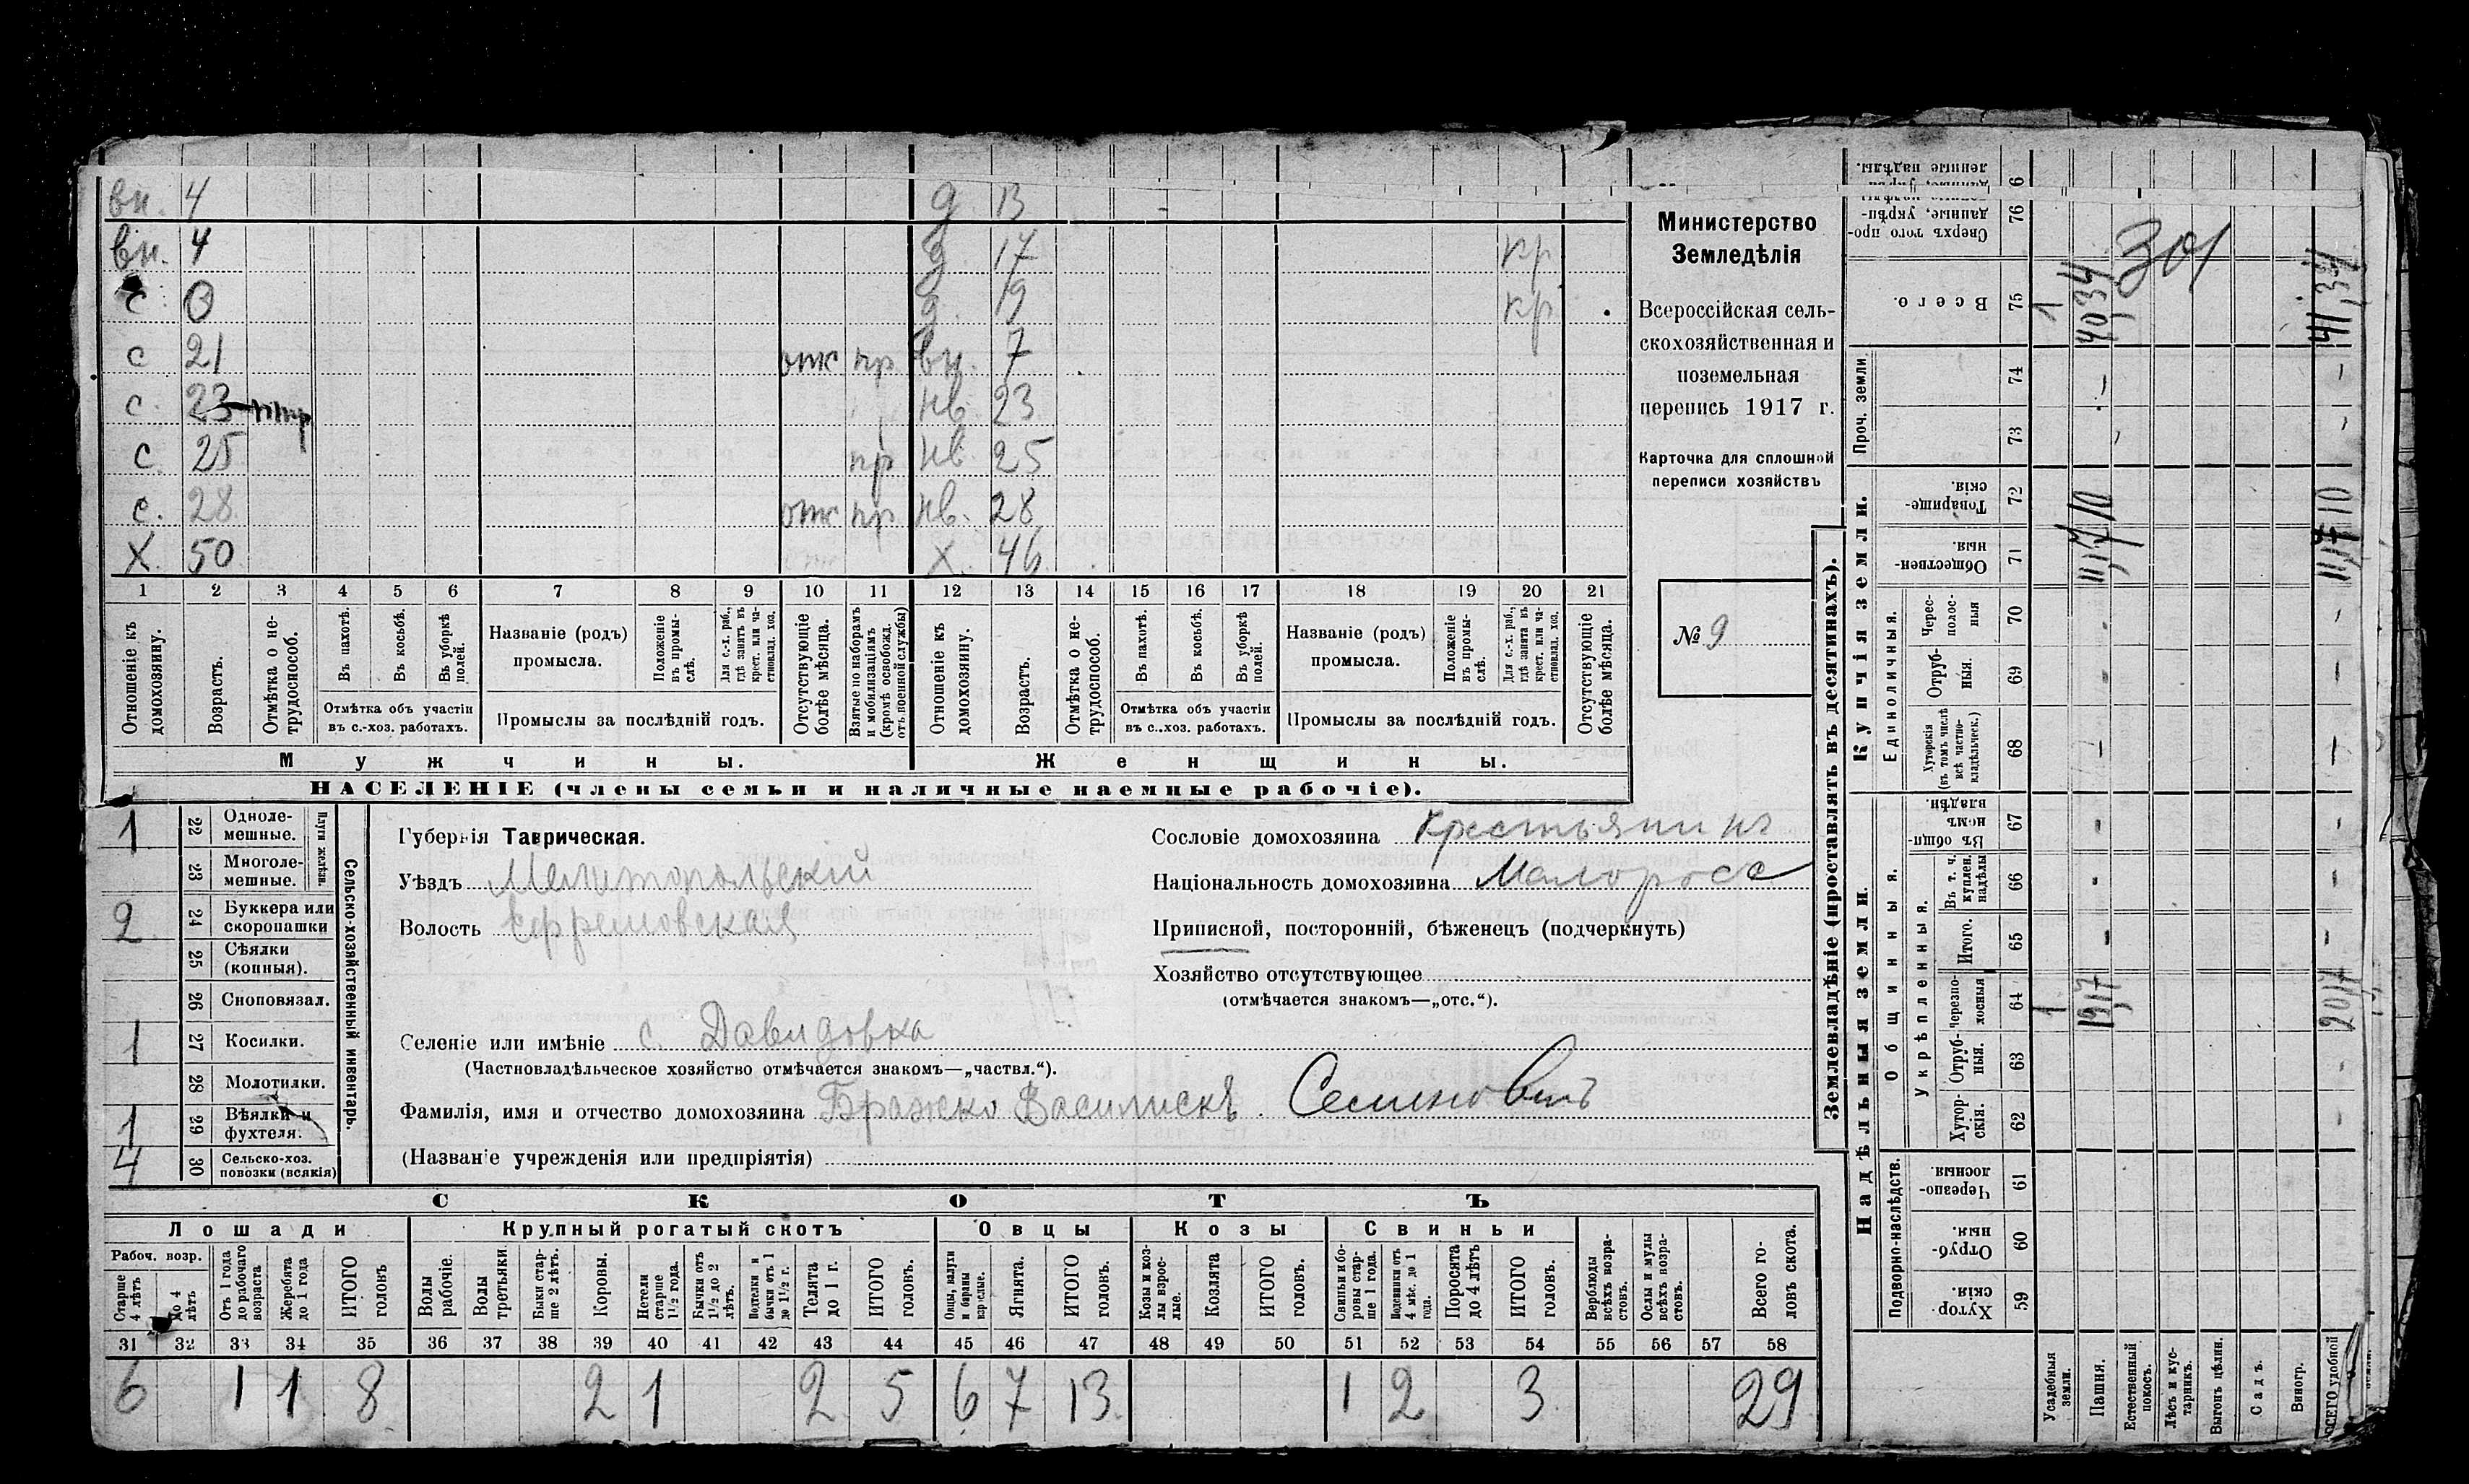 вн. 4 д. 13
вн. 4 д. 17 кр
с 0 д. 19 кр
с 21 отс пр вн. 7
с. 23 нв. 23
с 25 пр нв. 25
с. 28 отс пр нв. 28
Х. 50 Х. 46
1 2 3 4 5 6 7 8 9 10 11 12 13 14 15 16 17 18 19 20 21
Отношеніе къ домохозяину.
Возрастъ.
Отмѣтка о нетрудоспособ.
Въ пахотѣ.
Въ косьбѣ.
Въ уборкѣ полей.
Отмѣтка объ участіи
въ с.-хоз. работахъ.
Названіе (родъ)
промысла.
Положеніе въ промыслѣ.
Для с.-х. раб., гдѣ занятъ въ крест. или частновлад. хоз.
Промыслы за послѣдній годъ.
Отсутствующіе болѣе мѣсяца.
Взятые по наборамъ и мобилизаціямъ (кромѣ освобожд. отъ военной службы)
Отношеніе къ домохозяину.
Возрастъ.
Отмѣтка о нетрудоспособ.
Въ пахотѣ.
Въ косьбѣ.
Въ уборкѣ полей.
Отмѣтка объ участіи
въ с.-хоз. работахъ.
Названіе (родъ)
промысла.
Положеніе въ промыслѣ.
Для с.-х. раб., гдѣ занята въ крест. или частновлад. хоз.
Промыслы за послѣдній годъ.
Отсутствующіе болѣе мѣсяца.
Мужчины. Женщины.
НАСЕЛЕНІЕ (члены семьи и наличные наемные рабочіе).
Министерство
Земледѣлія
Всероссійская сель-
скохозяйственная и
поземельная
перепись 1917 г.
Карточка для сплошной
переписи хозяйствъ
№ 9
1 22 Одноле-
мешные.
23 Многоле-
мешные.
Плуги желѣзн.
2 24 Буккера или
скоропашки
25 Сѣялки
(конныя).
26 Сноповязал.
1 27 Косилки.
28 Молотилки.
1 29 Вѣялки и
фухтеля.
4 30 Сельско-хоз.
повозки (всякія)
Сельско-хозяйственный инвентарь.
Губернія Таврическая.
Уѣздъ Мелитопольскій
Волость Ефремовская
Селеніе или имѣніе с. Давидовка
(Частновладѣльческое хозяйство отмѣчается знакомъ—„частвл.“).
Фамилія, имя и отчество домохозяина Бражко Василискъ. Семеновичъ
(Названіе учрежденія или предпріятія)
Сословіе домохозяина Крестьянинъ
Національность домохозяина Малоросс
Приписной, посторонній, бѣженецъ (подчеркнуть)
Хозяйство отсутствующее
(отмѣчается знакомъ—„отс.“).
СКОТЪ
Лошади Крупный рогатый скотъ Овцы Козы Свиньи
Рабоч. возр.
Старше 4 лѣтъ
До 4 лѣтъ
Отъ 1 года до рабочаго возраста
Жеребята до 1 года
ИТОГО головъ
Волы рабочіе.
Волы третьяки.
Быки старше 2 лѣтъ.
Коровы.
Нетели старше 1½ года.
Бычки отъ 1½ до 2 лѣтъ.
Подтелки и бычки отъ 1 до 1½ г.
Телята до 1 г.
ИТОГО головъ.
Овцы, валухи и бараны взрослые.
Ягнята.
ИТОГО головъ.
Козы и козлы взрослые.
Козлята
ИТОГО головъ.
Свиньи и боровы старше 1 года.
Подсвинки отъ 4 мѣс. до 1 года.
Поросята до 4 лѣтъ
ИТОГО головъ.
Верблюды всѣхъ возрастовъ.
Ослы и мулы всѣхъ возрастовъ.
Всего головъ скота.
31 32 33 34 35 36 37 38 39 40 41 42 43 44 45 46 47 48 49 50 51 52 53 54 55 56 57 58
6 1 1 8 2 1 2 5 6 7 13 1 2 3 29
Землевладѣніе (проставлять въ десятинахъ).
Надѣльныя земли. Купчія земли. Проч. земли
Подворно-наслѣдств.
Общинныя.
Укрѣпленныя.
Единоличныя.
Хуторскія. 59
Отрубныя. 60
Черезполосныя. 61
Хуторскія. 62
Отрубныя. 63
Черезполосныя 64
Итого. 65
Въ т. ч. куплен. надѣлы 66
Въ общиномъ владѣн. 67
Хуторскія (въ томъ числѣ всѣ частновладѣльческ.) 68
Отрубныя. 69
Череcполосныя 70
Общественныя. 71
Товарищескія. 72
73
74
Всего. 75
Сверхъ того проданные, укрѣпленные надѣлы. 76
Усадебныя земли. 1 1
Пашня. 19,17 11,17 10 40,34
Естественный покосъ.
Лѣсъ и кустарникъ.
Выгонъ цѣлин.
Садъ.
Виногр.
ВСЕГО удобной 20,17 11,17 10 41,34